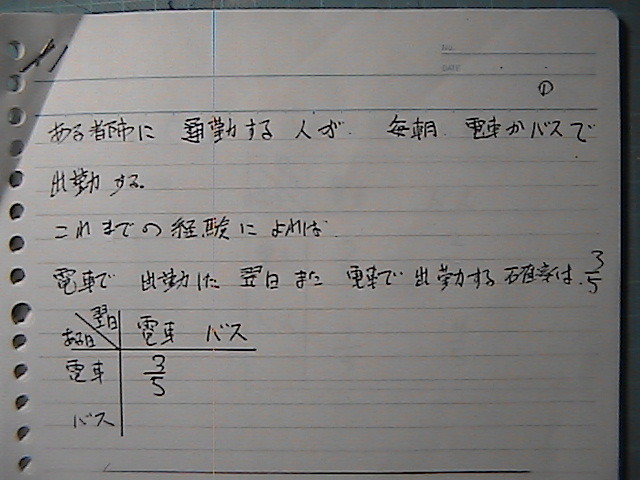 No.
DATE
①
ある都市に 通勤する 人が、毎朝、電車かバスで
出勤する。
これまでの経験によれば
電車で 出勤した 翌日また 電車で 出勤する確率は、3/5
翌日
ある日
電車 バス
電車 3/5
バス